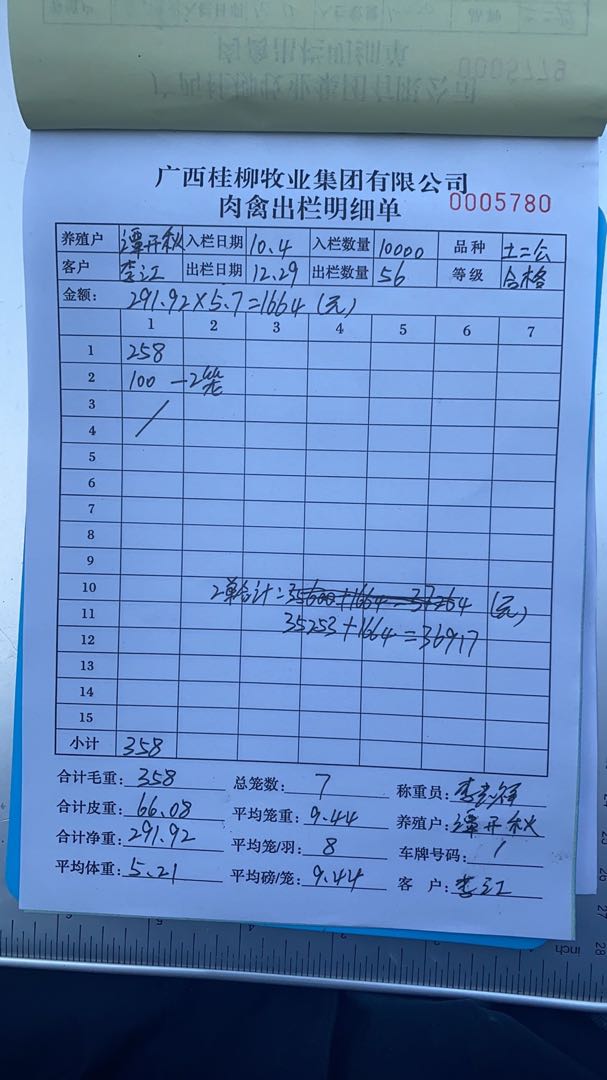 广西桂柳牧业集团有限公司
肉禽出栏明细单 0005780
养殖户 谭开秋 入栏日期 10.4 入栏数量 10000 品种 土二公
客户 李江 出栏日期 12.29 出栏数量 56 等级 合格
金额: 291.92×5.7=1664(元)
1 2 3 4 5 6 7
1 258
2 100 —2笼
3
4
5
6
7
8
9
10 2单合计:35600+1664=37264 (元)
11 35253+1664=36917
12
13
14
15
小计 358
合计毛重: 358 总笼数: 7 称重员:
合计皮重: 66.08 平均笼重: 9.44 养殖户: 谭开秋
合计净重: 291.92 平均笼/羽: 8 车牌号码: /
平均体重: 5.21 平均磅/笼: 9.44 客 户: 李江
inch